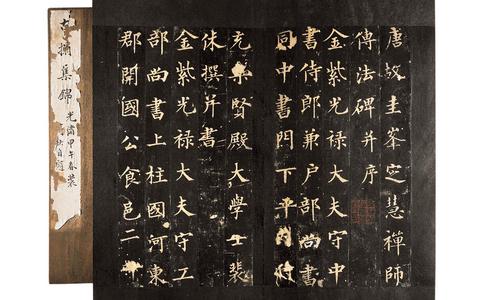 唐故圭峯定慧禪師
傳法碑并序
金紫光祿大夫守中
書侍郎兼户部尚書
同中書門下平
充集賢殿大學士裴
休撰并書
金紫光祿大夫守工
部尚書上柱國河東
郡開國公食邑二
古搨集錦
光緒甲午春裝
自題